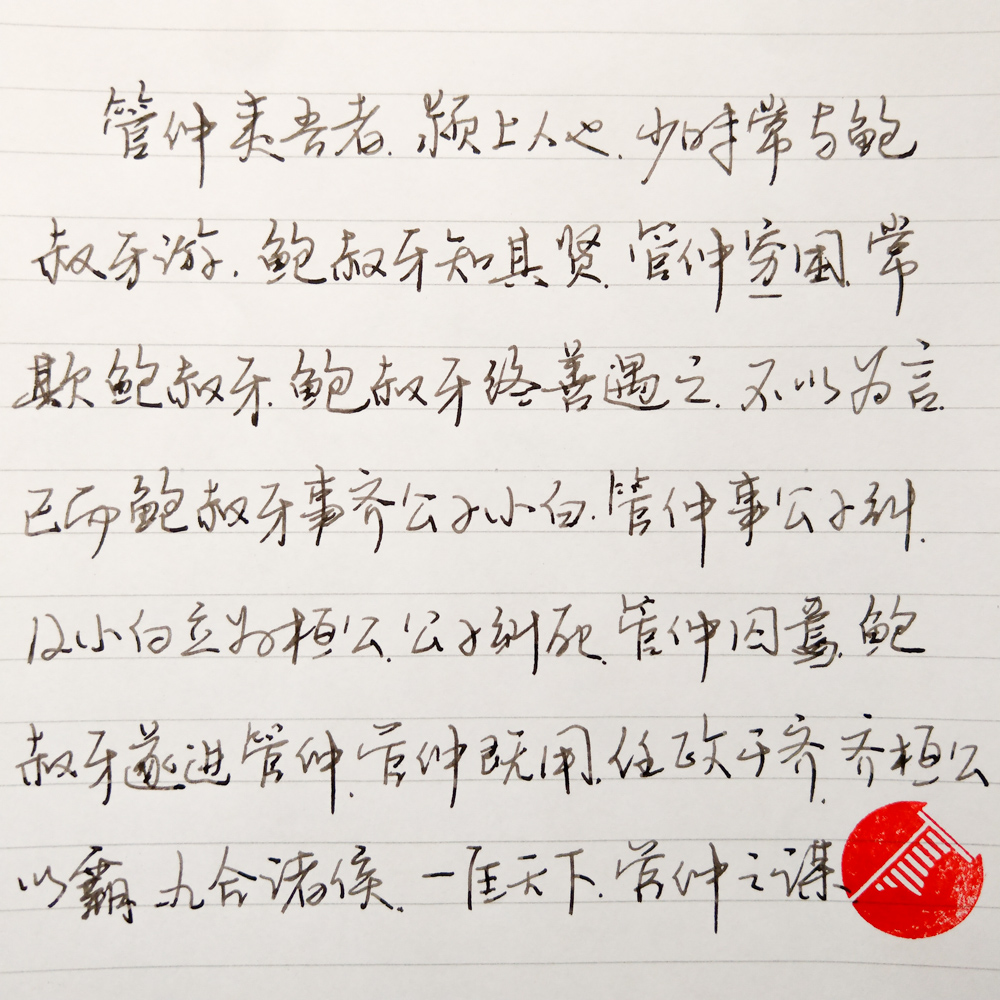 管仲夷吾者.颍上人也.少时常与鲍
叔牙游.鲍叔牙知其贤.管仲穷困.常
欺鲍叔牙.鲍叔牙终善遇之.不以为言.
已而鲍叔牙事齐公子小白.管仲事公子纠.
及小白立为桓公.公子纠死.管仲囚焉.鲍
叔牙遂进管仲.管仲既用.任政于齐.齐桓公
以霸.九合诸侯.一匡天下.管仲之谋.